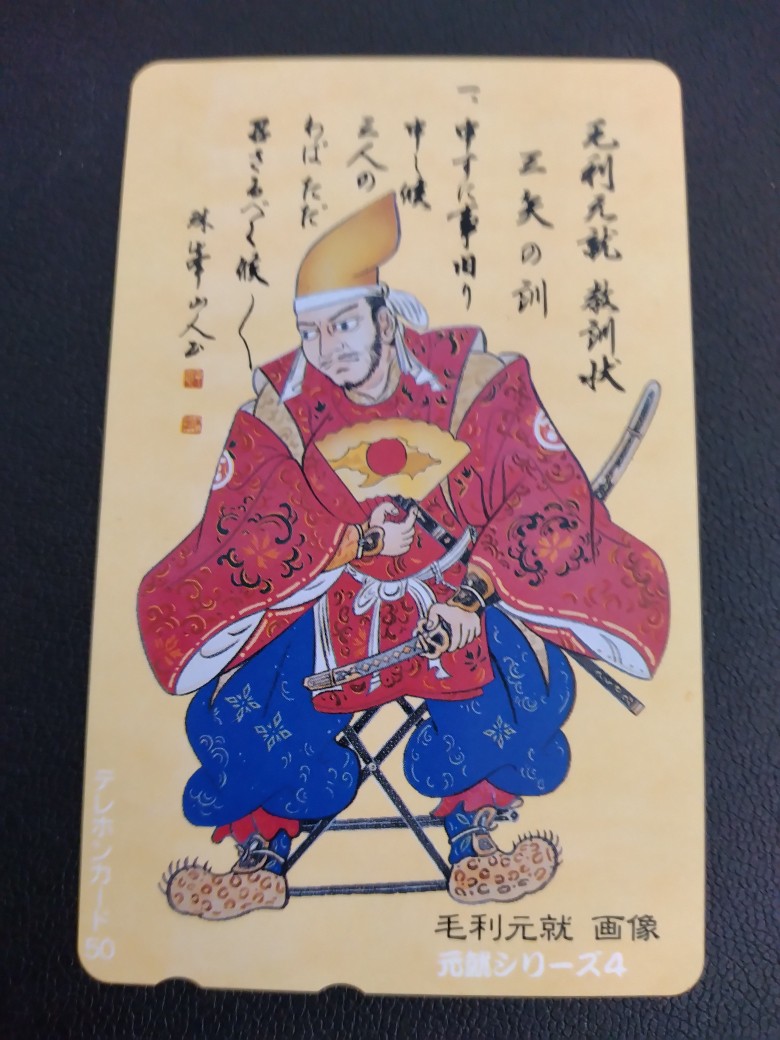 毛利元就 教訓状
三矢の訓
一、申すに事旧り
申し候
三人の
わば ただ
さるべく候
山人
毛利元就 画像
元就シリーズ4
テレホンカード
50